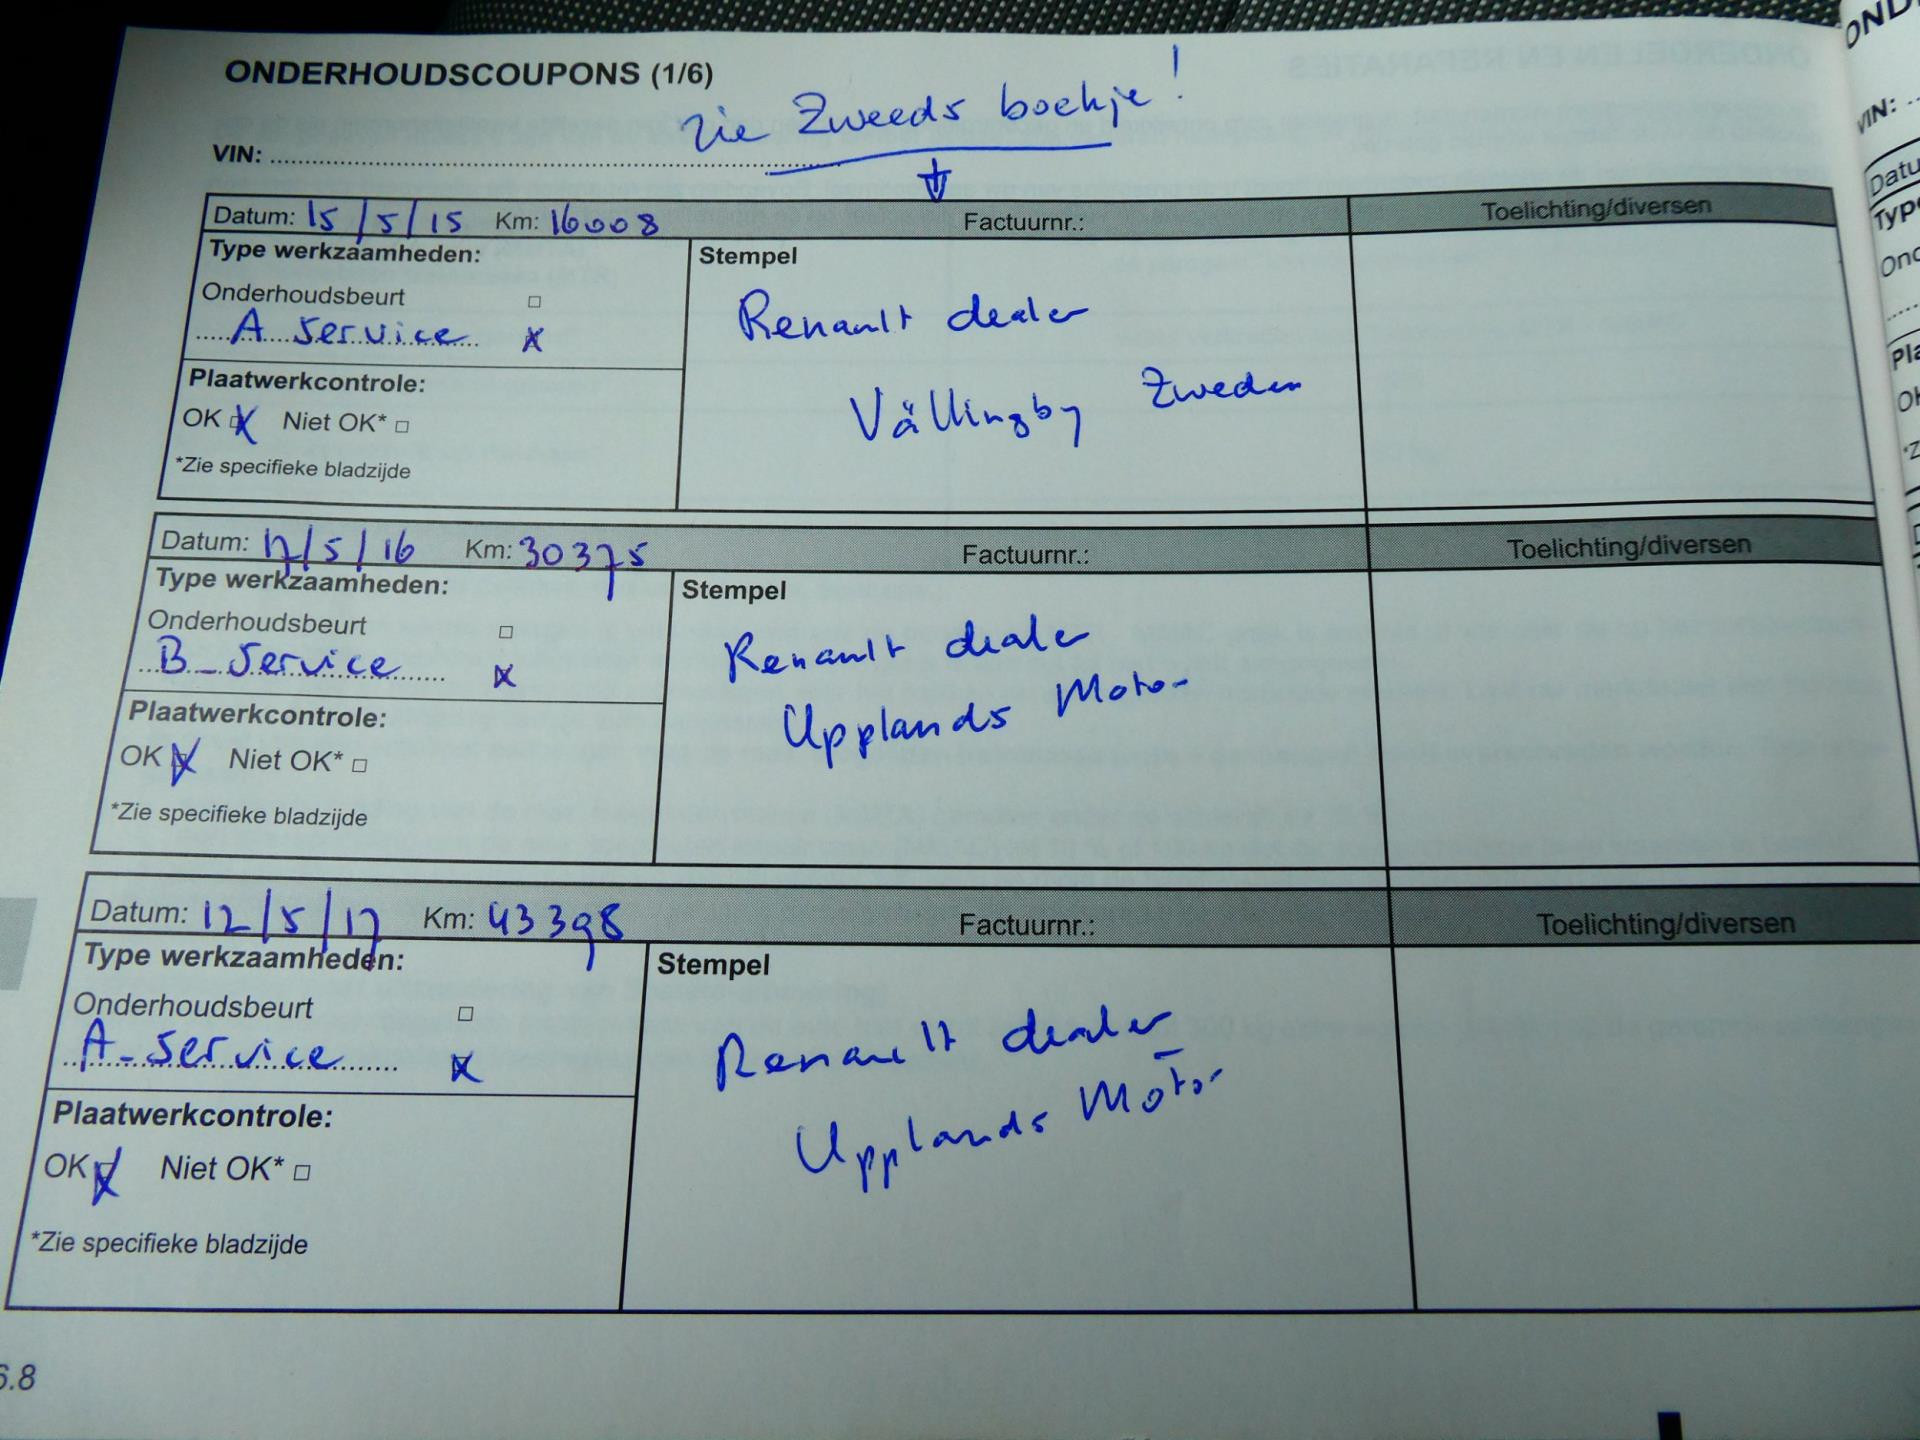 ONDERHOUDSCOUPONS (1/6)
zie Zweeds boekje!
VIN:
Datum: 15/5/15 Km: 16008 Factuurnr.: Toelichting/diversen
Type werkzaamheden:
Stempel
Onderhoudsbeurt
A service
Renault dealer
Vällingby Zweden
Plaatwerkcontrole:
OK Niet OK*
*Zie specifieke bladzijde
Datum: 17/5/16 Km: 30375 Factuurnr.: Toelichting/diversen
Type werkzaamheden:
Stempel
Onderhoudsbeurt
B-service
Renault dealer
Upplands Motor
Plaatwerkcontrole:
OK Niet OK*
*Zie specifieke bladzijde
Datum: 12/5/17 Km: 43398 Factuurnr.: Toelichting/diversen
Type werkzaamheden:
Stempel
Onderhoudsbeurt
A-service
Renault dealer
Upplands Motor
Plaatwerkcontrole:
OK Niet OK*
*Zie specifieke bladzijde
6.8
VIN: